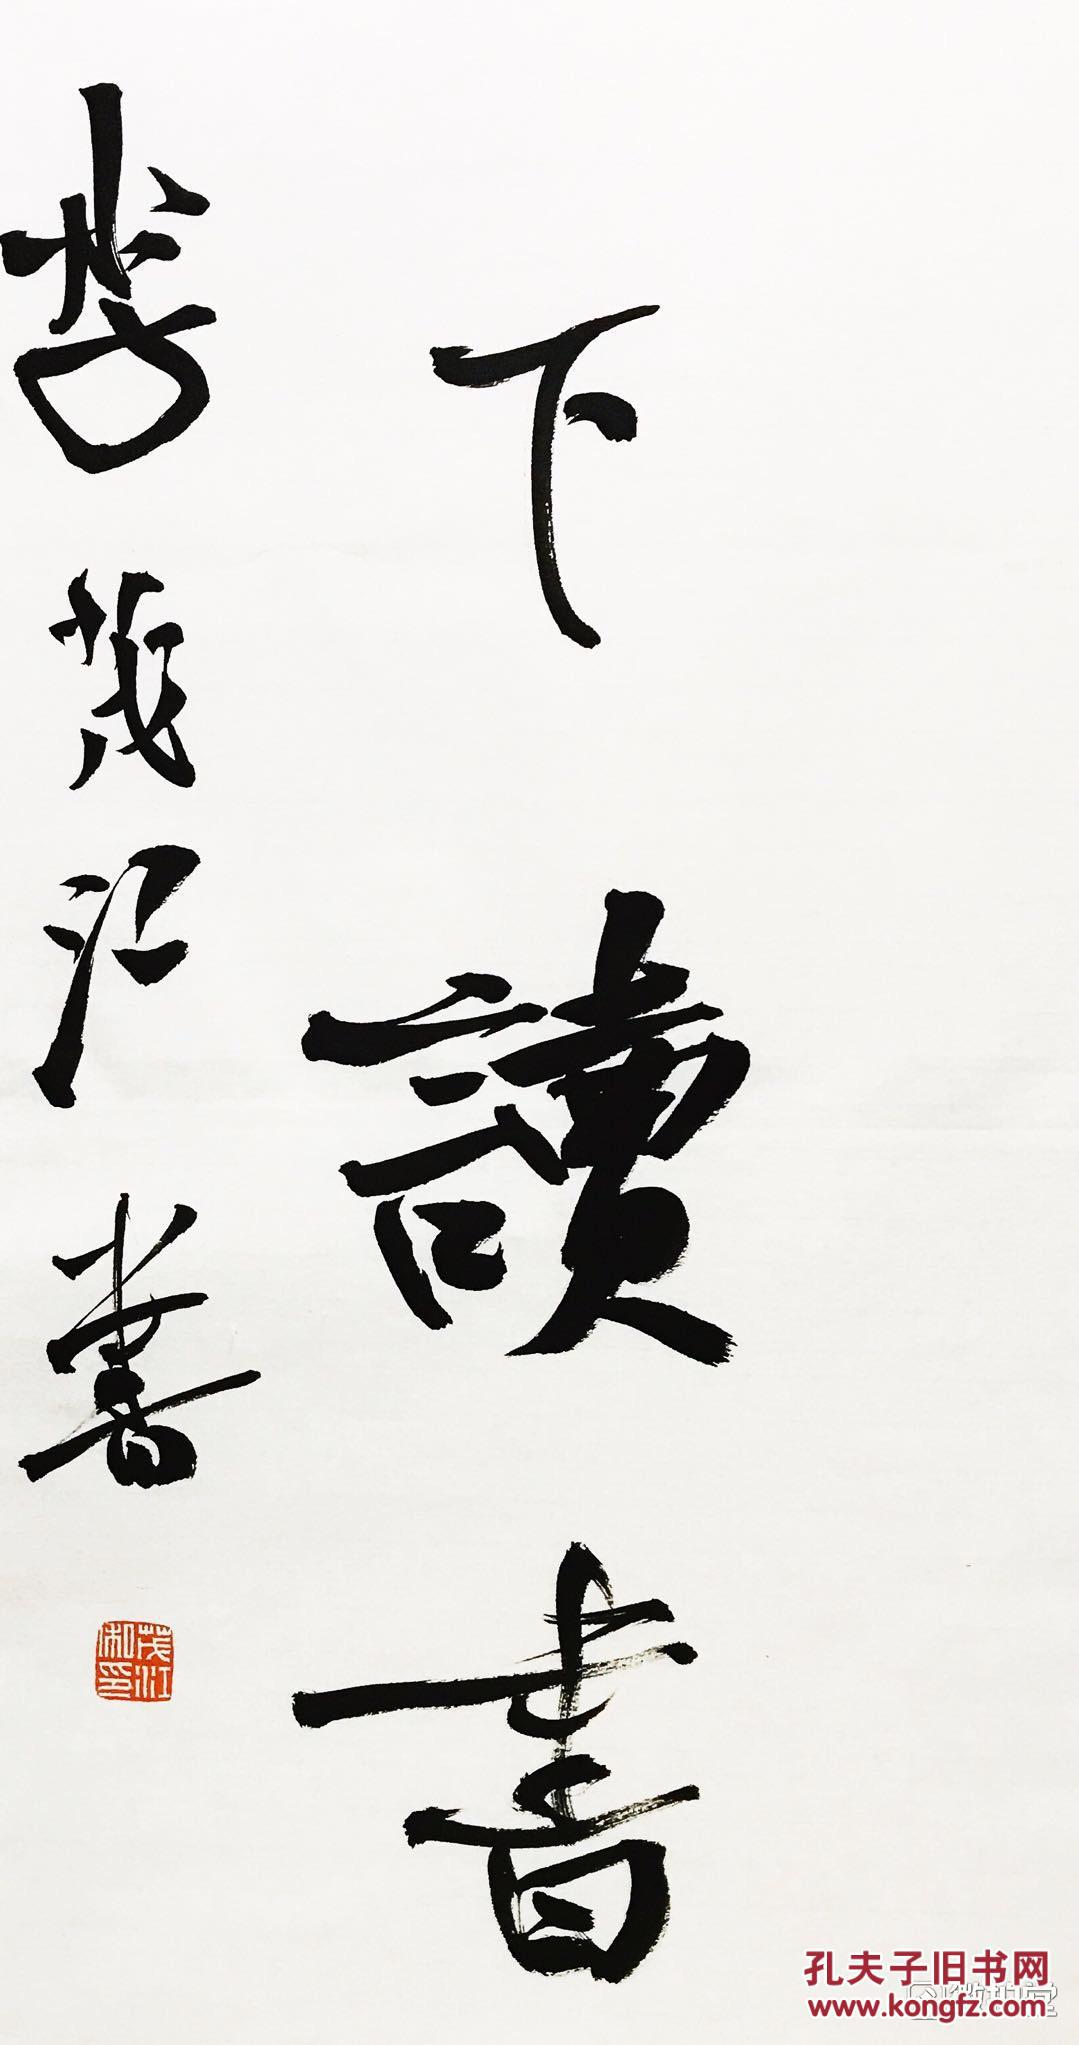 下讀書
李茂江書
茂江
私印
孔夫子旧书网
www.kongfz.com